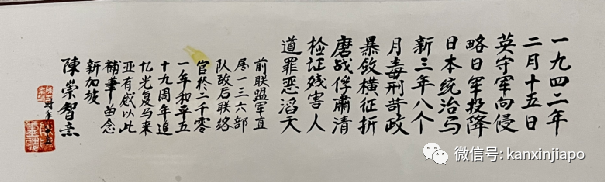 一九四二年
二月十五日
英守军向侵
略日军投降
日本统治马
新三年八个
月毒刑苛政
暴敛横征折
磨战俘肃清
检证残害人
道罪恶滔天
前联盟军直
属一三六部
队敌后联络
官於二千零
一年和平五
十九周年追
忆光复马来
亚有感以此
補筆留念
新加坡
陳崇智
微信号: kanxinjiapo